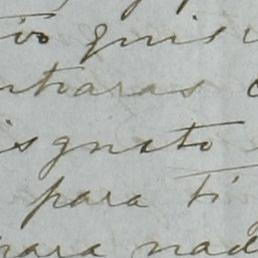 ivo quis
ntraras
isgusto
para ti
para nad